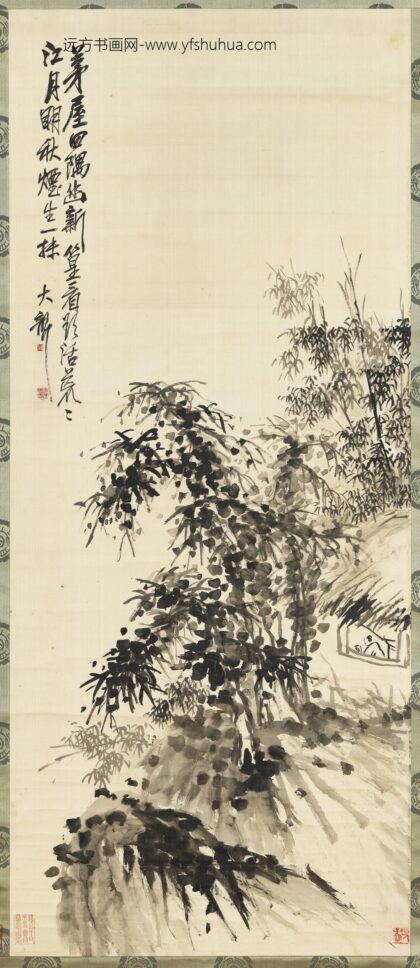 远方书画网-www.yfshuhua.com
茅屋四隅幽新篁看影活荒〻
江月明秋煙生一抹 大聾